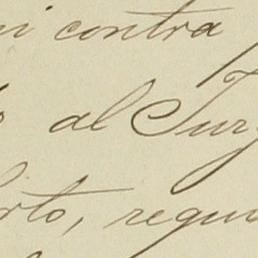 ni contra
al Juz
rto, requi